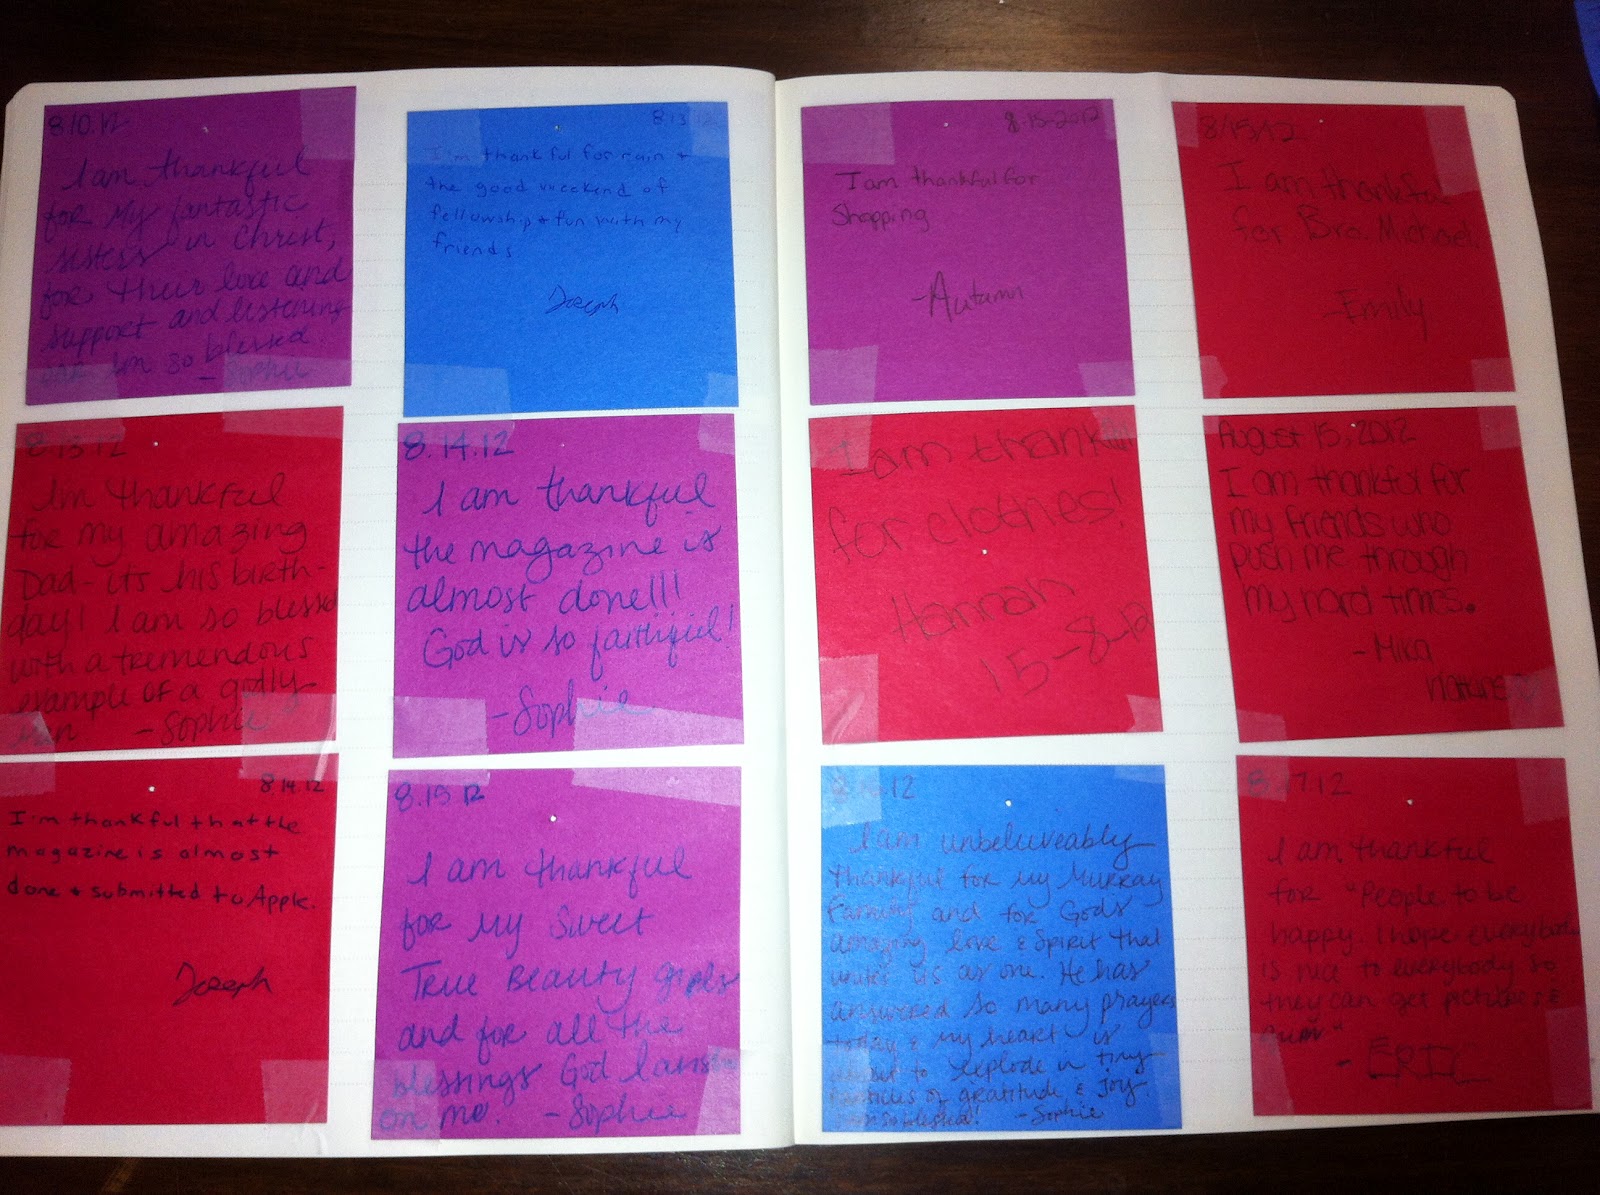 8.10.12
I am thankful
for my fantastic
sisters in Christ,
for their love and
support and listening
I'm so blessed.
- Sophie
8.13.12
I'm thankful for rain +
the good weekend of
fellowship + fun with my
friends
Joseph
8.13.12
Im thankful
for my amazing
Dad - its his birth-
day! I am so blessed
with a tremendous
example of a godly
man - Sophie
8.14.12
I am thankful
the magazine is
almost done!!!
God is so faithful!
- Sophie
8.14.12
I'm thankful that the
magazine is almost
done + submitted to Apple.
Joseph
8.15.12
I am thankful
for my sweet
True Beauty girls
and for all the
blessings God
on me. - Sophie
8-15-2012
I am thankful for
Shopping
- Autumn
8/15/12
I am thankful
for Bro. Michael.
- Emily
I am thankful
for clothes!
Hannah
15-8-12
August 15, 2012
I am thankful for
my friends who
push me through
my hard times.
- Mika
.12
I am unbelieveably
thankful for my Murray
Family and for Gods
amazing love & Spirit that
unites us as one. He has
answered so many prayers
today & my heart is
about to explode in tiny
particles of gratitude & joy.
so blessed! - Sophie
8.17.12
I am thankful
for "People to be
happy. I hope everybody
is nice to everybody so
they can get pictures &
"
- ERIC